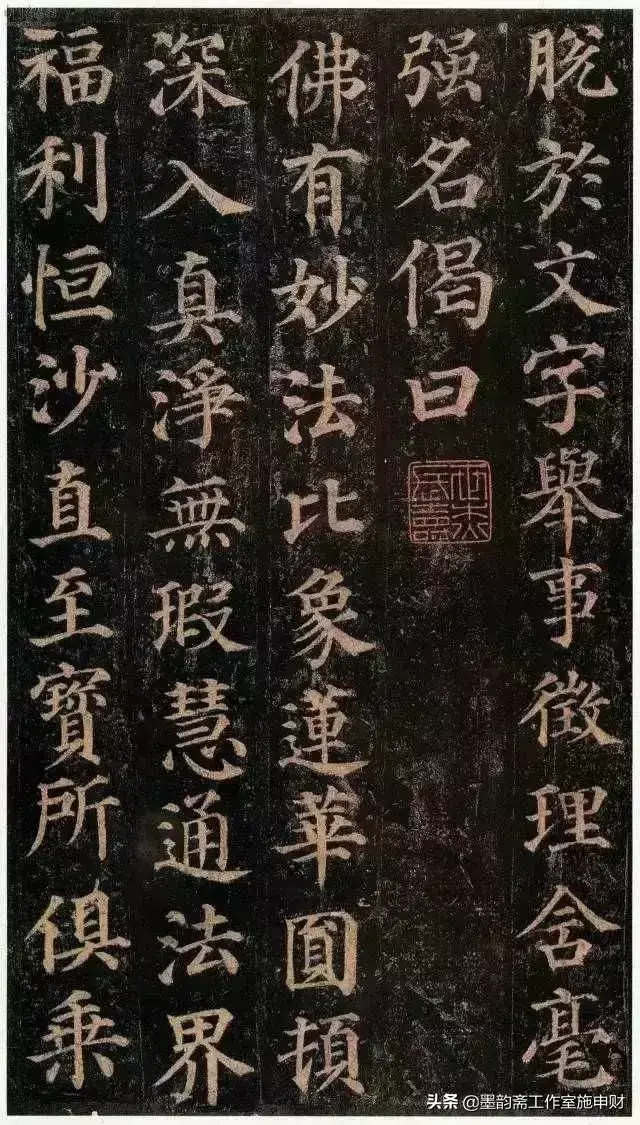 脫於文字舉事徵理含毫
强名偈曰
佛有妙法比象蓮華圓頓
深入真淨無瑕慧通法界
福利恒沙直至寶所俱乗
头条 @墨韵斋工作室施申财